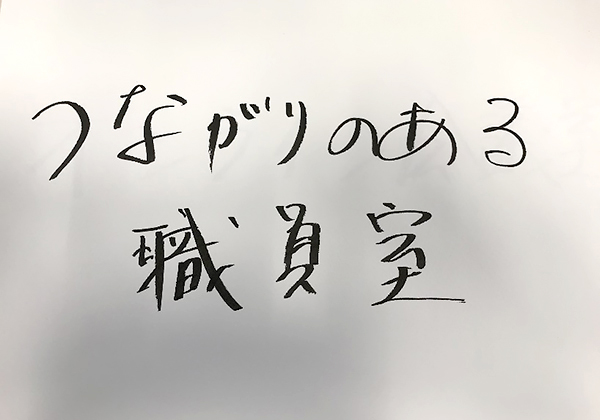 つながりのある
職員室